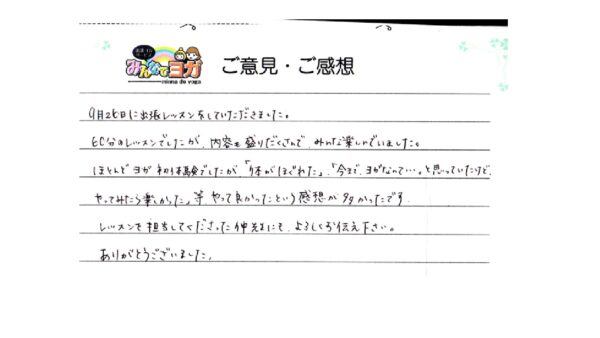 みんなでヨガ
minna de yoga
ご意見・ご感想
9月26日に出張レッスンをしていただきました。
60分のレッスンでしたが、内容も盛りだくさんで、みんな楽しんでいました。
ほとんどヨガ初体験でしたが、「体がほぐれた」、「今まで、ヨガなんて…と思っていたけど、
やってみたら楽しかった」等 やって良かったという感想が多かったです。
レッスンを担当してくださった 先生にも、よろしくお伝え下さい。
ありがとうございました。